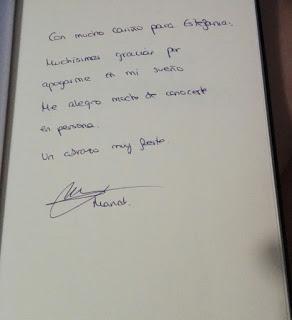 Con mucho cariño para Estefanía.
Muchísimas gracias por
apoyarme en mi sueño
Me alegro mucho de conocerte
en persona.
Un abrazo muy fuerte.